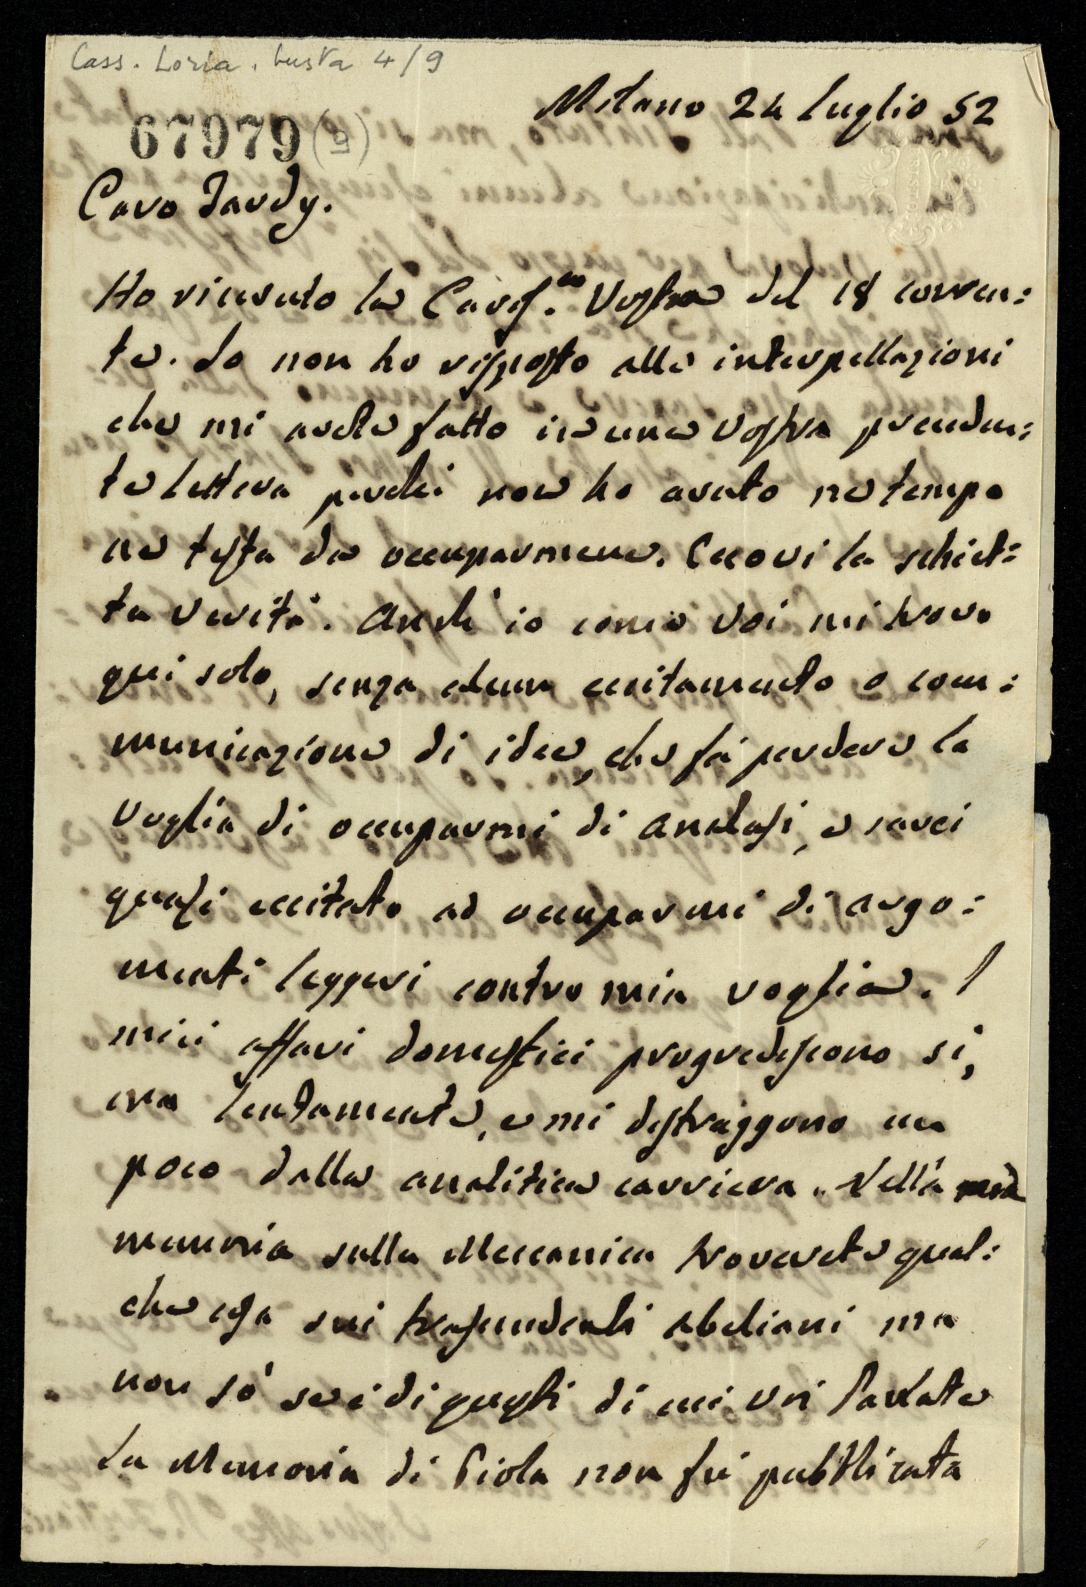 Cass. Loria. busta 4/9
Milano 24 luglio 52
67979 (9)
Caro Tardy.
Ho ricevuto la Cariss.ma Vostra del 18 corren=
te. Io non ho risposto alle interpellazioni
che mi avete fatto in una vostra preceden=
te lettera perchè non ho avuto ne tempo
ne testa da occuparmene. Eccovi la schiet=
ta verità. Anch'io come voi mi trovo
qui solo, senza alcun eccitamento o com=
municazione di idee, che fà perdere la
voglia di occuparmi di analasi, e sarei
quasi eccitato ad occuparmi di argo=
menti leggeri contro mia voglia. I
miei affari domestici progrediscono si,
ma lentamente, e mi distraggono un
poco dalla analitica carriera. Nella mia
memoria sulla Meccanica troverete qual=
che cosa sui trascendenti abeliani ma
non sò se è di questi di cui voi parlate
La Memoria di Piola non fu pubblicata